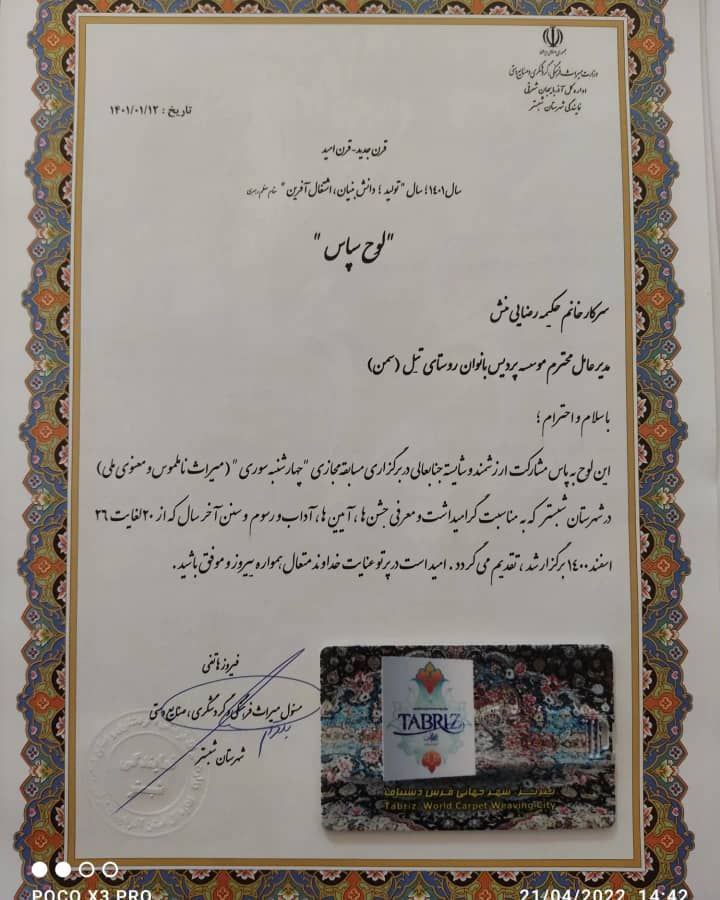 جمهوری اسلامی ایران
وزارت میراث فرهنگی، گردشگری و صنایع دستی
اداره کل آذربایجان شرقی
نمایندگی شهرستان شبستر
تاریخ : ۱۴۰۱/۰۱/۱۲
قرن جدید - قرن امید
سال ۱۴۰۱؛ سال "تولید ؛ دانش بنیان، اشتغال آفرین" مقام معظم رهبری
"لوح سپاس"
سرکار خانم حکیمه رضایی منش
مدیرعامل محترم موسسه پردیس بانوان روستای تیل (سمن)
باسلام و احترام ؛
این لوح به پاس مشارکت ارزشمند و شایسته جنابعالی در برگزاری مسابقه مجازی "چهارشنبه سوری" (میراث ناملموس و معنوی ملی)
در شهرستان شبستر که به مناسبت گرامیداشت و معرفی جشن ها، آیین ها، آداب و رسوم و سنن آخر سال که از ۲۰ لغایت ۲۶
اسفند ۱۴۰۰ برگزار شد ، تقدیم می گردد . امید است در پرتو عنایت خداوند متعال همواره پیروز و موفق باشید .
فیروز هاتفی
مسئول میراث فرهنگی، گردشگری، صنایع دستی
شهرستان شبستر
TABRIZ
تبریز، شهر جهانی فرش دستباف
Tabriz, World Carpet Weaving City
POCO X3 PRO
21/04/2022 14:42